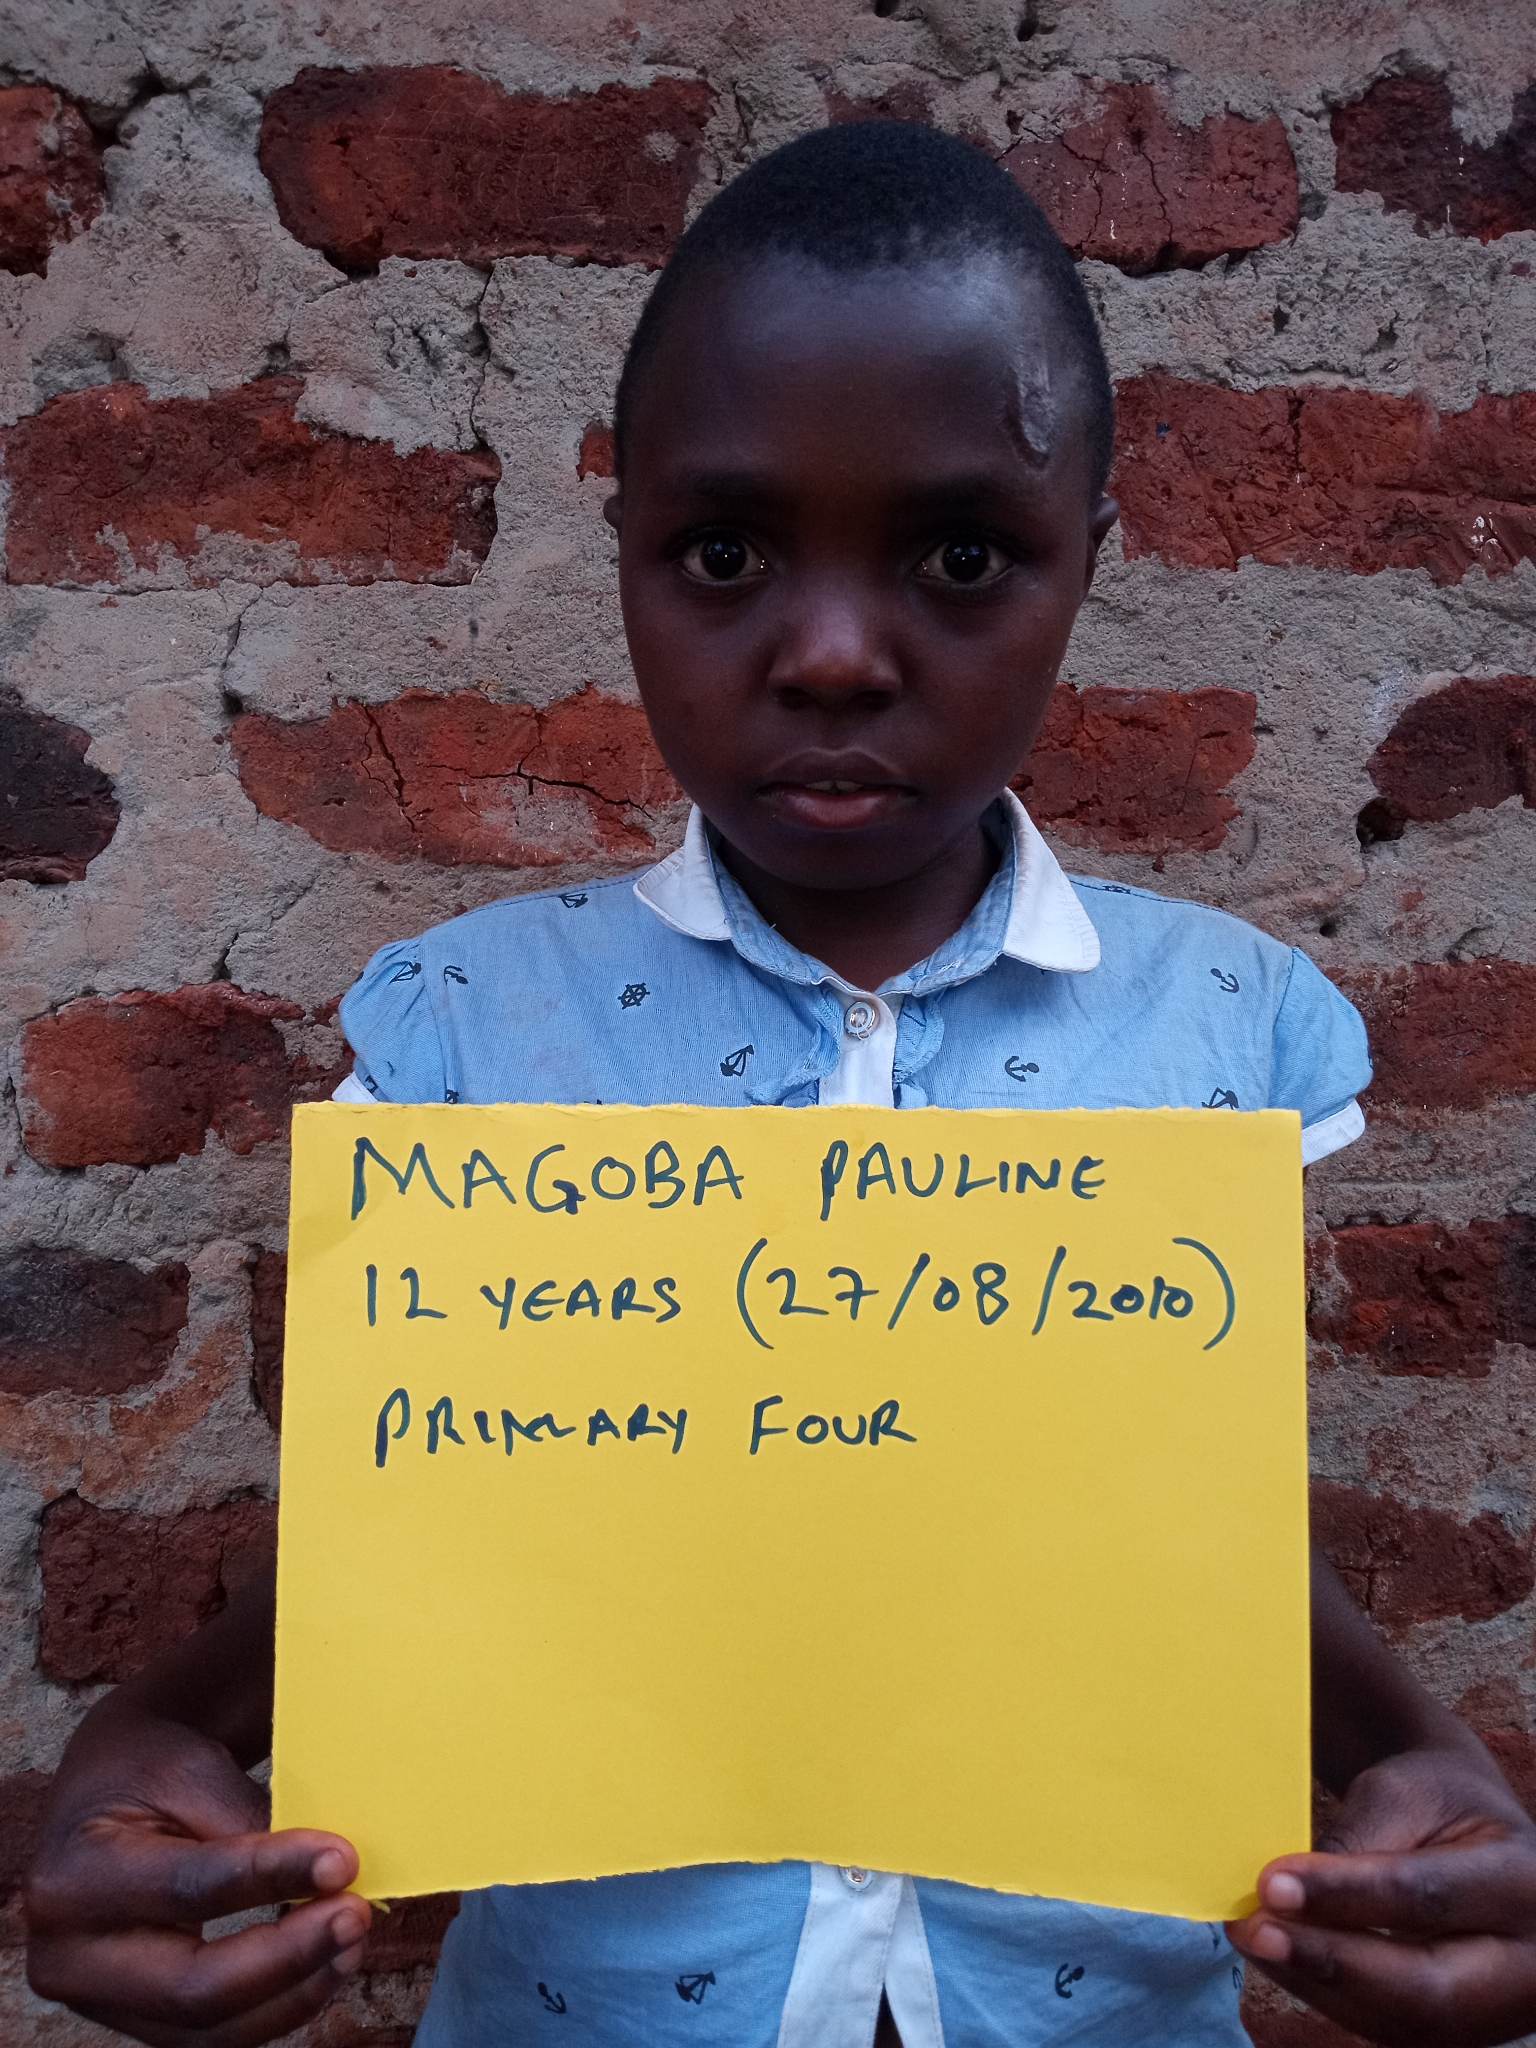 MAGOBA PAULINE
12 YEARS (27/08/2010)
PRIMARY FOUR